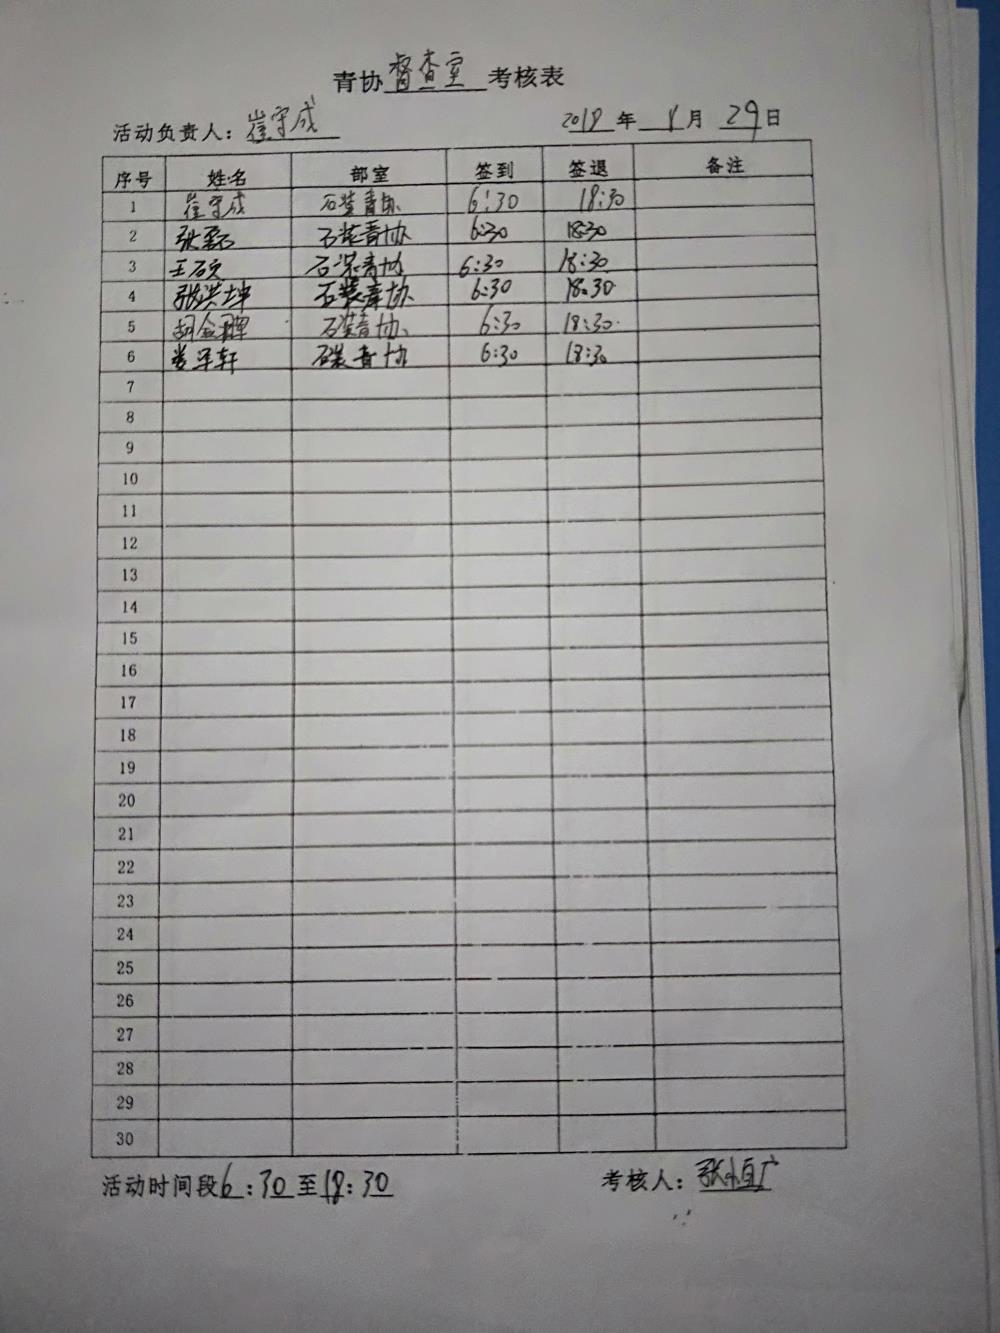 青协督查室考核表
活动负责人：崔守成 2018 年 月 29日
序号 姓名 部室 签到 签退 备注
1 崔守成 石装青协 6:30 18:30
2 张 石装青协 6:30 18:30
3 王硕 石深青协 6:30 18:30
4 张洪坤 石装青协 6:30 18:30
5 胡金 石装青协 6:30 18:30
6 娄军轩 石装青协 6:30 18:30
7
8
9
10
11
12
13
14
15
16
17
18
19
20
21
22
23
24
25
26
27
28
29
30
活动时间段6:30至18:30 考核人：张恒广